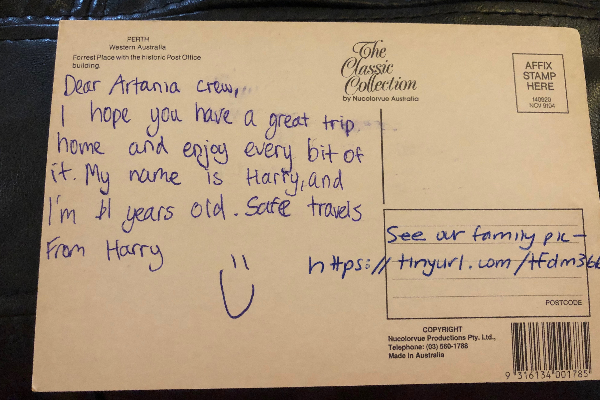 PERTH
Western Australia
Forrest Place with the historic Post Office
building.
Dear Artania crew,
I hope you have a great trip
home and enjoy every bit of
it. My name is Harry, and
I'm 11 years old. Safe travels
From Harry
The
Classic
Collection
by Nucolorvue Australia
AFFIX
STAMP
HERE
140929
NCV 9104
See our family pic -
https://tinyurl.com/tfdm366
POSTCODE
COPYRIGHT
Nucolorvue Productions Pty. Ltd.,
Telephone: (03) 560-1788
Made in Australia
9 316134 001785